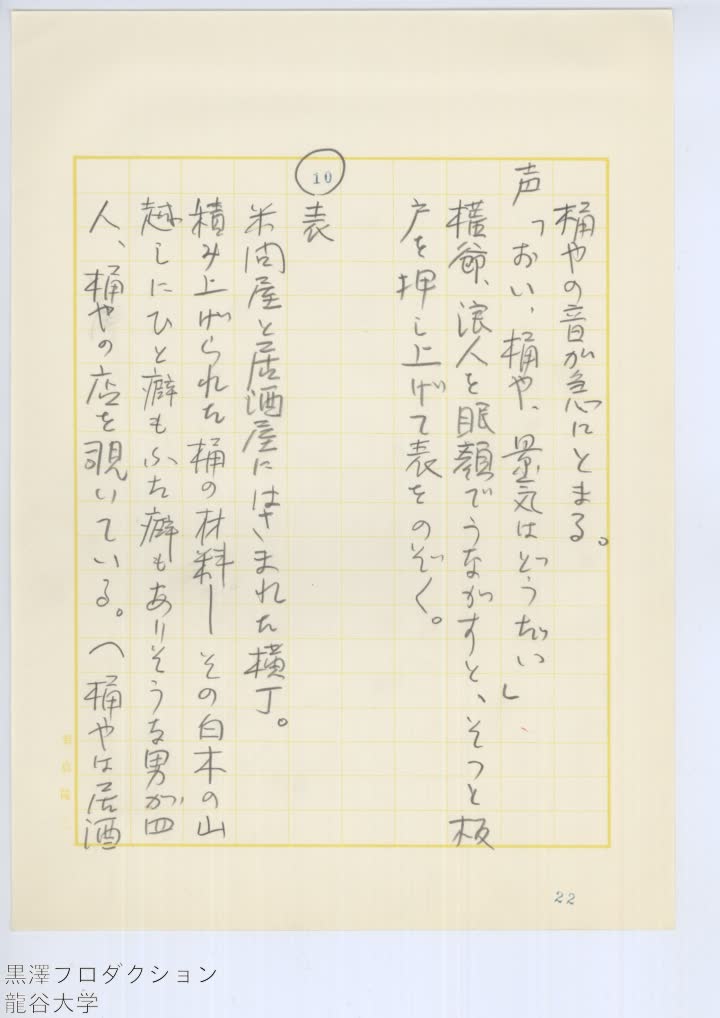 桶やの音が急にとまる。
声「おい、桶や、景気はどうだい」
権爺、浪人を眼顔でうながすと、そっと板
戸を押し上げて表をのぞく。
10
表
米問屋と居酒屋にはさまれた横丁。
積み上げられた桶の材料―その白木の山
越しにひと癖もふた癖もありそうな男が四
人、桶やの店を覗いている。(桶やは居酒
22
黒澤プロダクション
龍谷大学